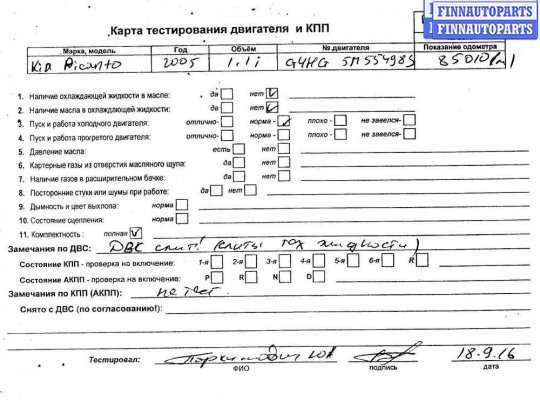 FINNAUTOPARTS
FINNAUTOPARTS
Карта тестирования двигателя и КПП
Марка, модель Год Объём № двигателя Показание одометра
Kia Picanto 2005 1,1i G4HG 5M554985 85010
1. Наличие охлаждающей жидкости в масле: да нет
2. Наличие масла в охлаждающей жидкости: да нет
3. Пуск и работа холодного двигателя: отлично- норма - плохо - не завелся-
4. Пуск и работа прогретого двигателя: отлично- норма - плохо - не завелся-
5. Давление масла: есть нет
6. Картерные газы из отверстия масляного щупа: да нет
7. Наличие газов в расширительном бачке: да нет
8. Посторонние стуки или шумы при работе: да нет
9. Дымность и цвет выхлопа: норма
10. Состояние сцепления: норма
11. Комплектность : полная
Замечания по ДВС: жидкости)
Состояние КПП - проверка на включение: 1-я 2-я 3-я 4-я 5-я 6-я R
Состояние АКПП - проверка на включение: P R N D
Замечания по КПП (АКПП): нет
Снято с ДВС (по согласованию!):
Тестировал: 18-9.16
ФИО подпись дата